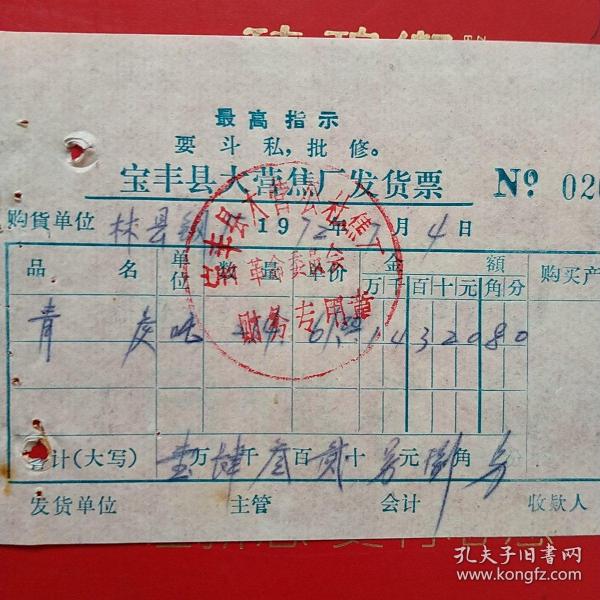 最高指示
要斗私,批修。
宝丰县大营焦厂发货票 No. 020
购貨单位 林县 1972年 月4日
品名 单位 数量 单价 金額 购买产
万千百十元角分
青炭 吨 1432080
合计(大写) 壹万肆千叁百贰十另元捌角分
发货单位 主管 会计 收款人
宝丰县大营公社焦厂
革命委员会
财务专用章
孔夫子旧书网
www.kongfz.com